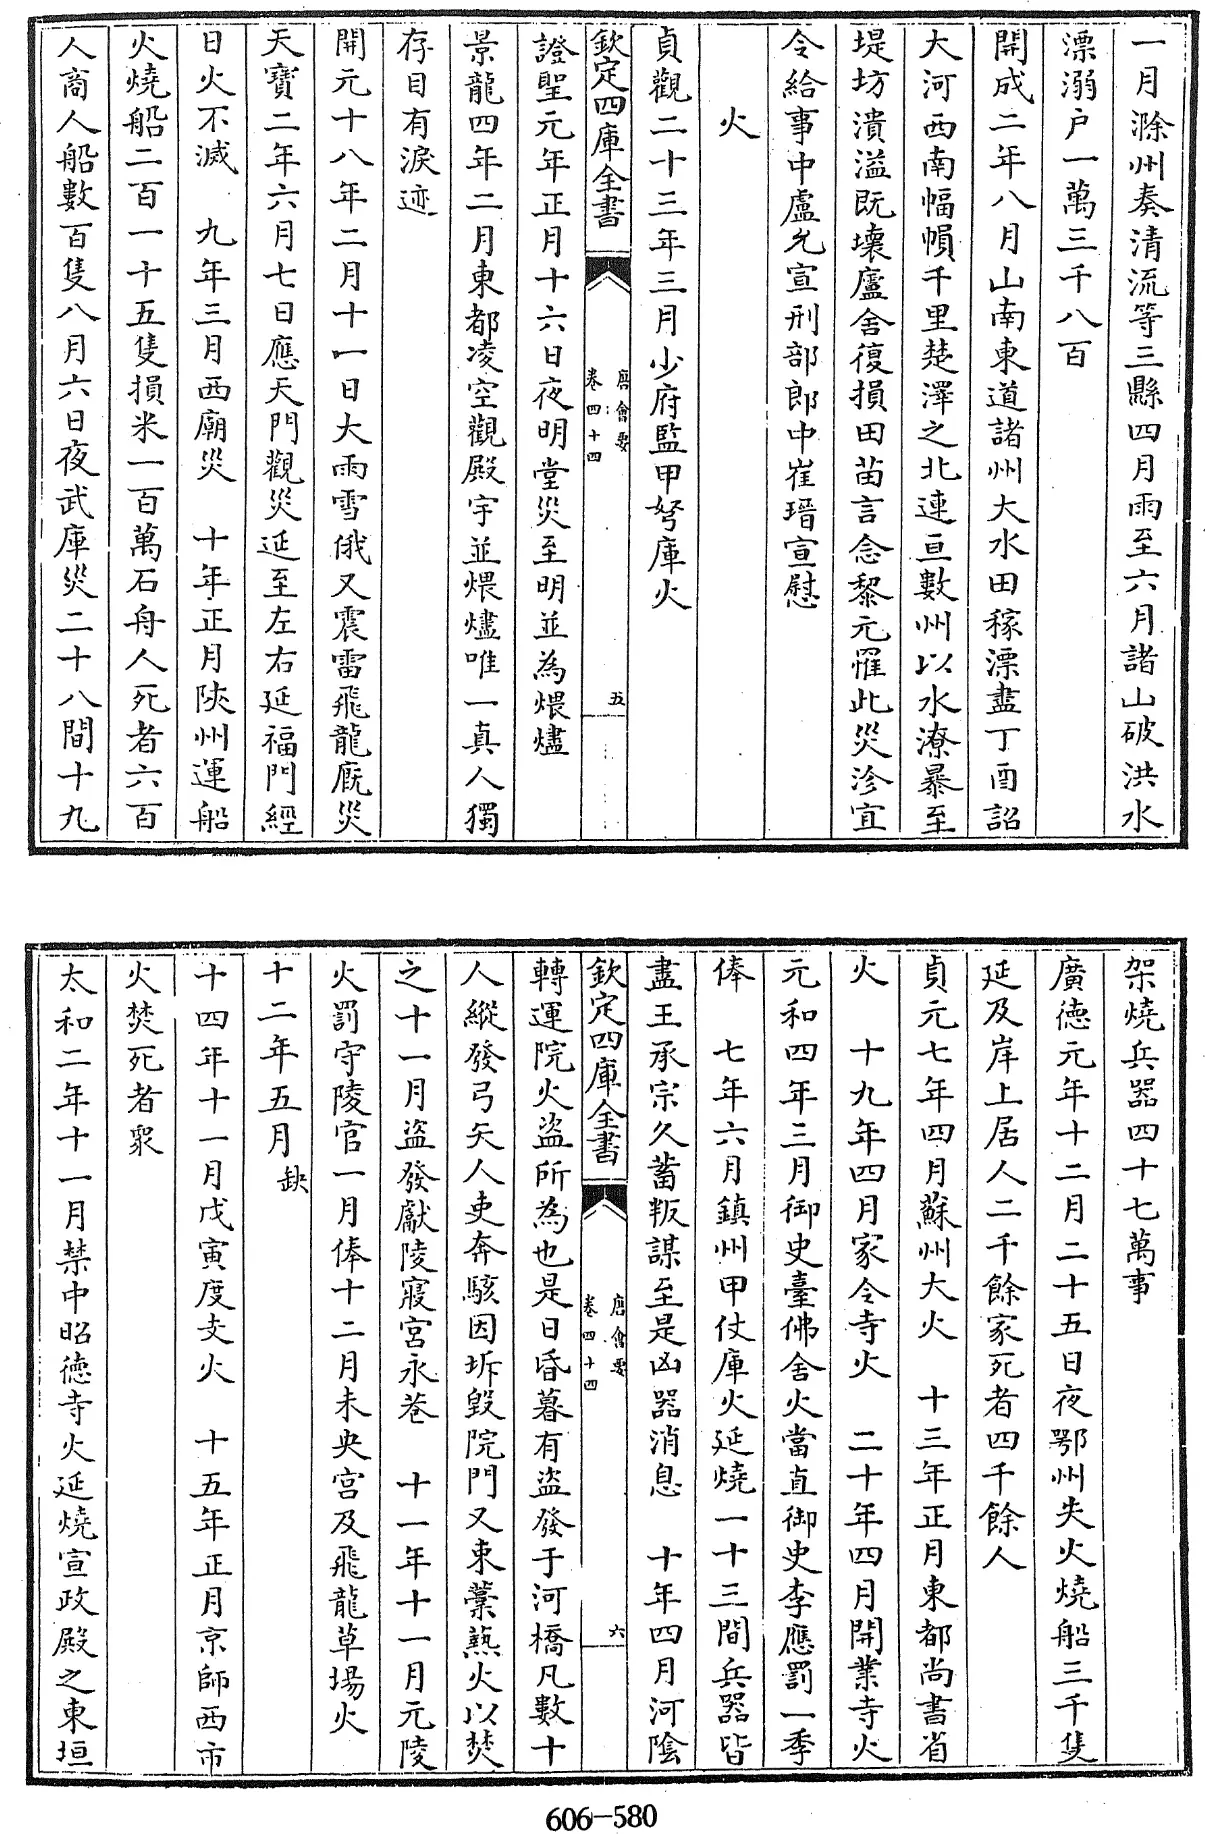 一月滁州奏清流等三縣四月雨至六月諸山破洪水
漂溺户一萬三千八百
開成二年八月山南東道諸州大水田稼漂盡丁酉詔
大河西南幅㡓千里楚澤之北連亘數州以水潦暴至
堤坊潰溢既壊廬舍復損田苗言念黎元罹此災沴宜
令給事中盧允宣刑部郎中崔瑨宣慰
火
貞觀二十三年三月少府監甲弩庫火
欽定四庫全書
唐會要
卷四十四
五
證聖元年正月十六日夜明堂災至明並為煨燼
景龍四年二月東都凌空觀殿宇並煨燼唯一真人獨
存目有淚迹
開元十八年二月十一日大雨雪俄又震雷飛龍廐災
天寶二年六月七日應天門觀災延至左右延福門經
日火不滅　九年三月西廟災　十年正月陜州運船
火燒船二百一十五隻損米一百萬石舟人死者六百
人商人船數百隻八月六日夜武庫災二十八間十九
架燒兵器四十七萬事
廣德元年十二月二十五日夜鄂州失火燒船三千隻
延及岸上居人二千餘家死者四千餘人
貞元七年四月蘇州大火　十三年正月東都尚書省
火　十九年四月家令寺火　二十年四月開業寺火
元和四年三月御史臺佛舍火當直御史李應罰一季
俸　七年六月鎮州甲仗庫火延燒一十三間兵器皆
盡王承宗久蓄叛謀至是凶器消息　十年四月河隂
欽定四庫全書
唐會要
卷四十四
六
轉運院火盜所為也是日昏暮有盜發于河橋凡數十
人縱發弓矢人吏奔駭因坼毀院門又束藁爇火以焚
之十一月盜發獻陵寢宮永巷　十一年十一月元陵
火罰守陵官一月俸十二月未央宮及飛龍草場火
十二年五月缺
十四年十一月戊寅度支火　十五年正月京師西市
火焚死者衆
太和二年十一月禁中昭德寺火延燒宣政殿之東垣
606-580